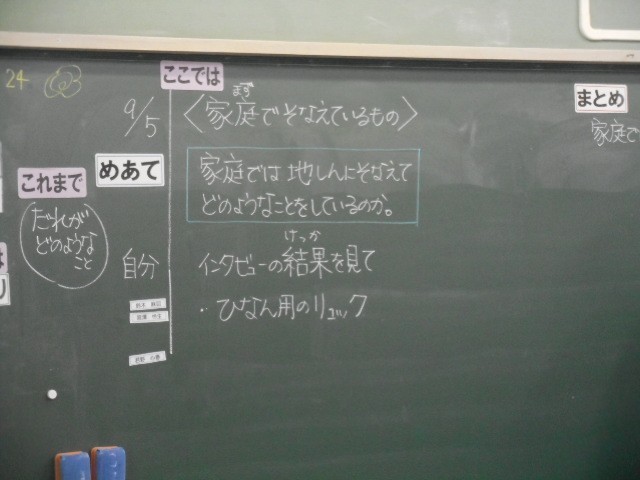 24
ここでは
9/5
まず
〈家庭でそなえているもの〉
まとめ
家庭で
これまで
めあて
家庭では地しんにそなえて
どのようなことをしているのか。
だれが
どのような
こと
自分
けっか
インタビューの結果を見て
・ひなん用のリュック